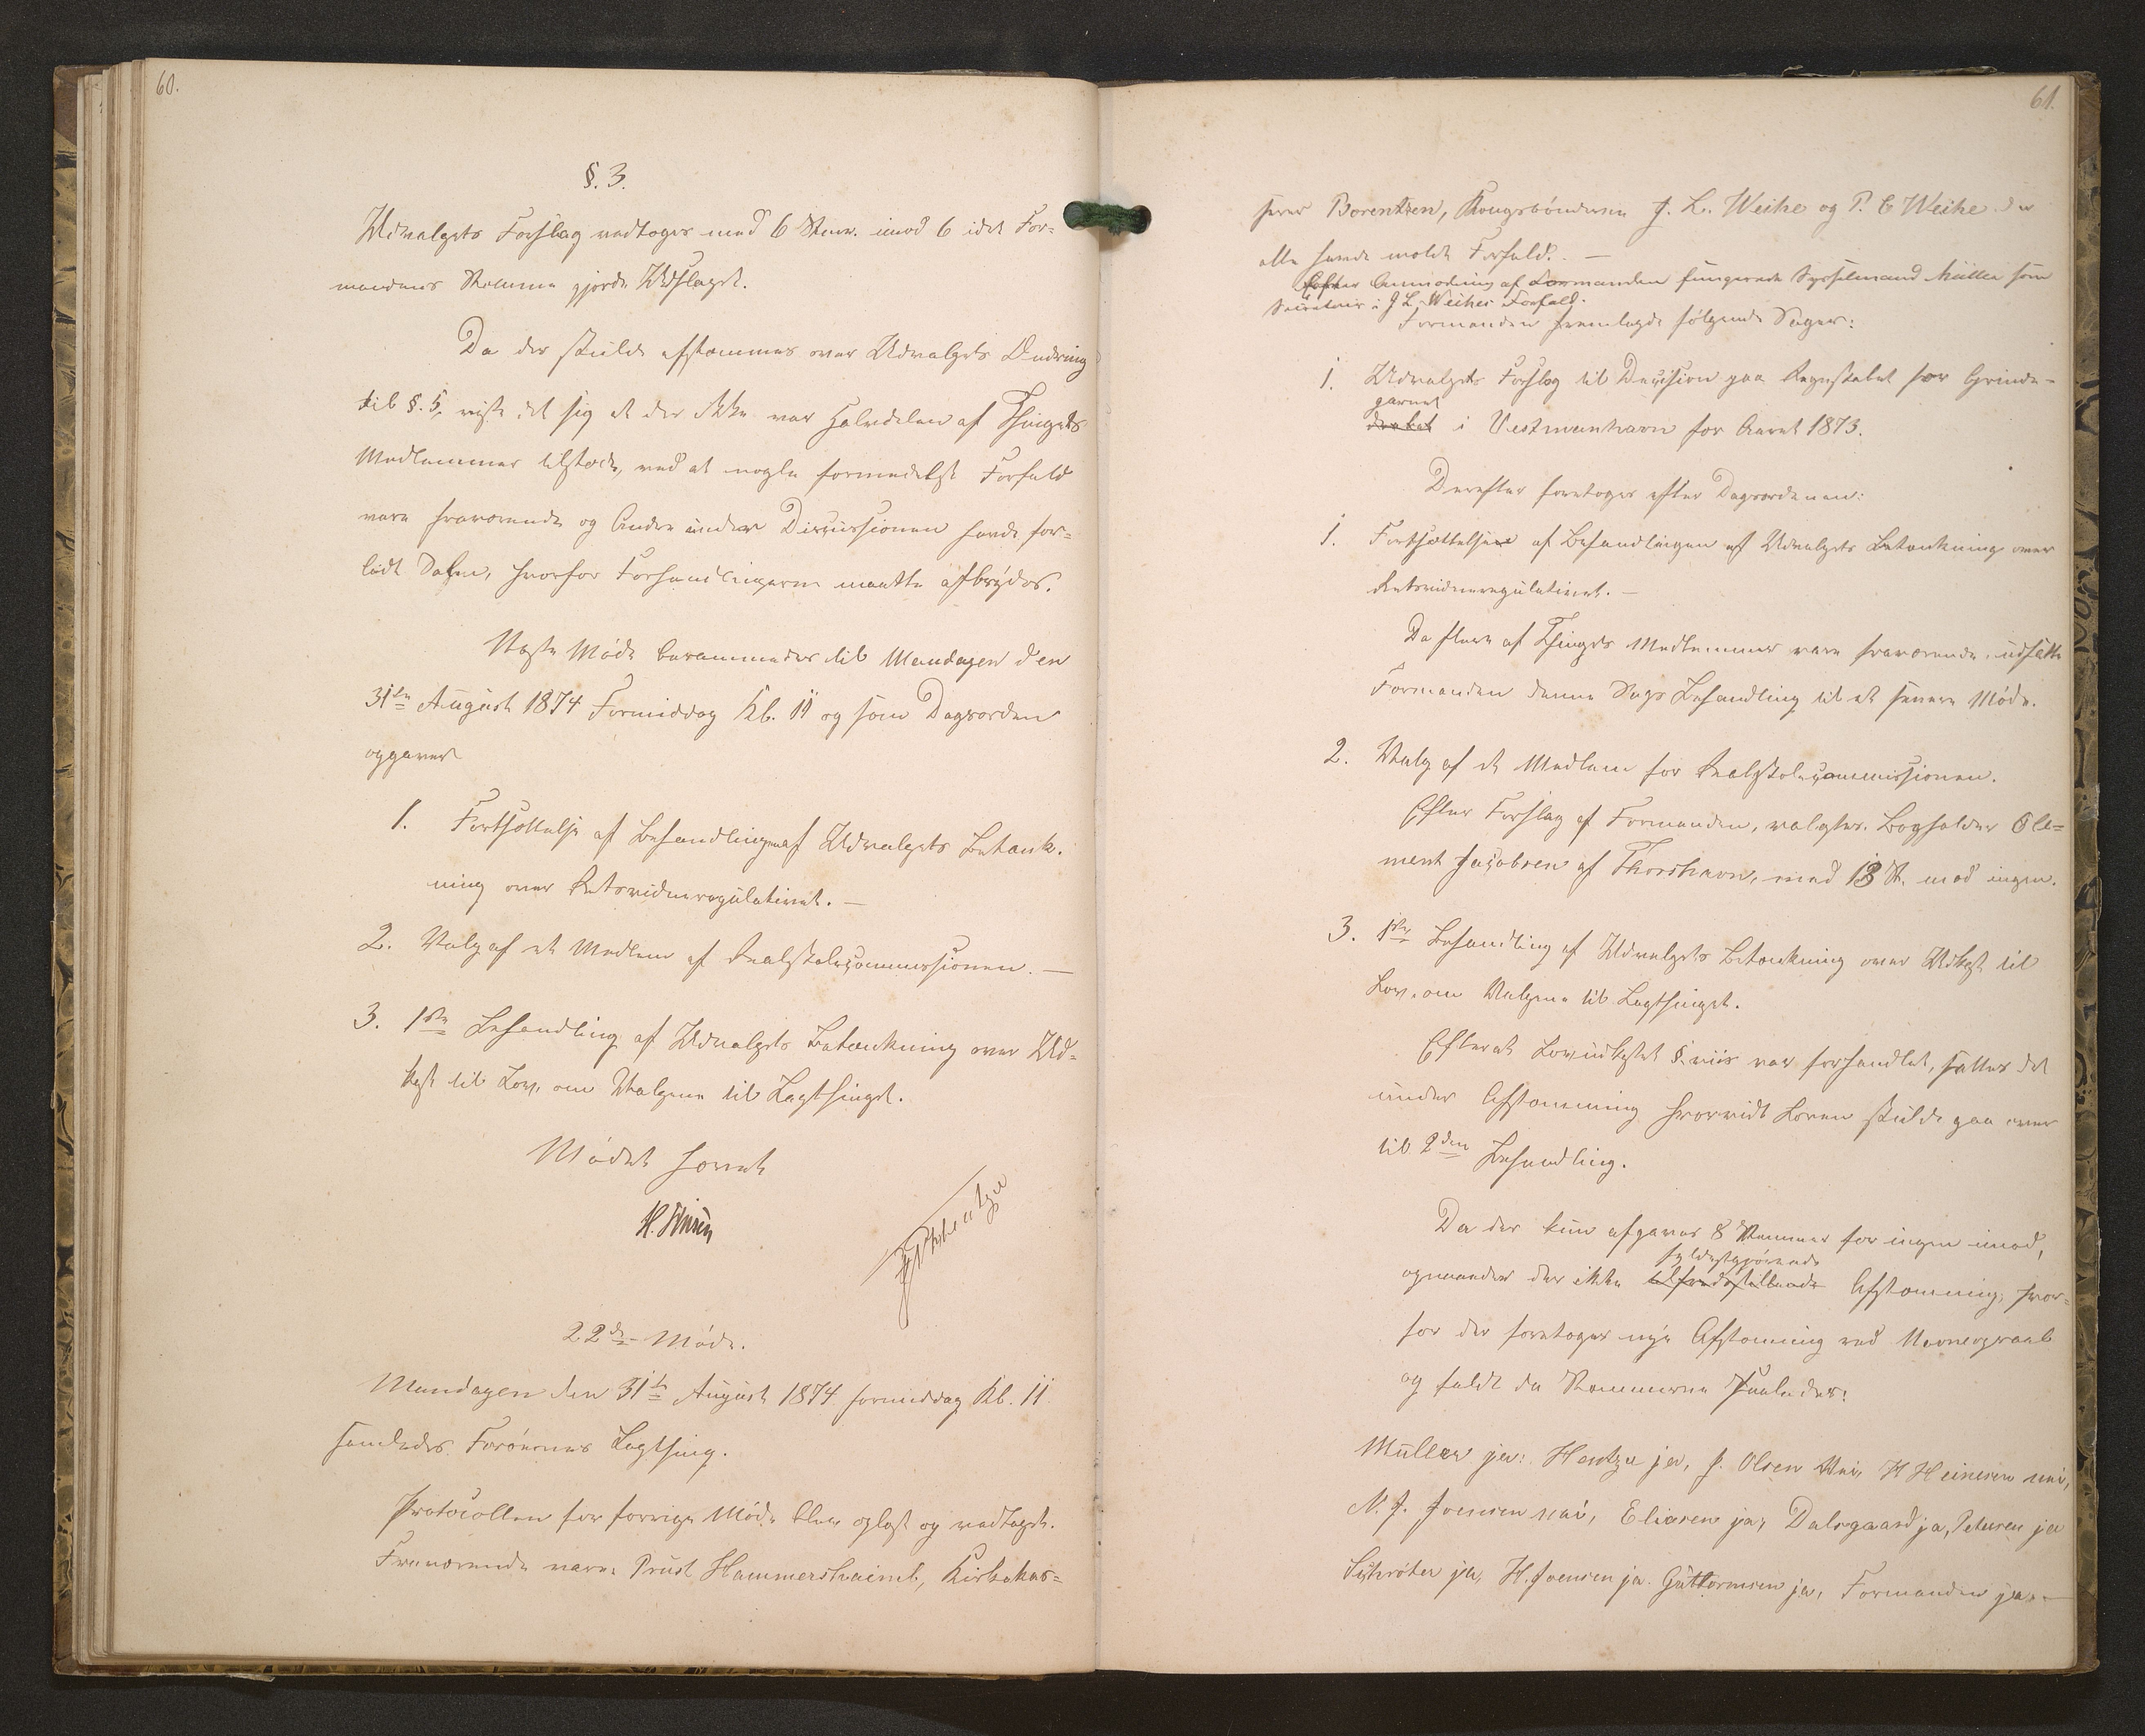 60.
§. 3.
Udvalgets Forslag vedtoges med 6 Stem. imod 6 idet For-
mandens Stemme gjorde Udslaget.
Da der skulde afstemmes over Udvalgets Ændring
til §. 5, viste det sig at der ikke var Halvdelen af Thingets
Medlemmer tilstede, ved at nogle formedelst Forfald
vare fraværende og Andre under Discussionen havde for-
ladt Salen, hvorfor Forhandlingerne maatte afbrydes.
Næste Møde berammedes til Mandagen den
31te August 1874 Formiddag Kl. 11 og som Dagsorden
opgaves
1. Fortsættelse af Behandlingen af Udvalgets Betænk-
ning over Retsvidneregulativet. —
2. Valg af et Medlem af Realskolecommissionen. —
3. 1ste Behandling af Udvalgets Betænkning over Ud-
kast til Lov, om Valgene til Lagthinget.
Mødet hævet
H. Finsen
22de Møde.
Mandagen den 31te August 1874 formiddag Kl. 11
samledes Færøernes Lagthing.
Protocollen for forrige Møde blev oplæst og vedtaget.
Fraværende vare: Provst Hammershaimb, Kirkekas-
61.
serer Berentsen, Kongsbønderne J. L. Weihe og P. C Weihe der
alle havde meldt Forfald. —
Efter Anmodning af Formanden fungerede Sysselmand Müller som
Secretair i J L. Weihes Forfald.
Formanden fremlagde følgende Sager:
1. Udvalgets Forslag til Decision paa Regnskabet for Grinde-
garnet
i Vestmanhavn for Aaret 1873.
Derefter foretoges efter Dagsordenen:
1. Fortsættelsen af Behandlingen af Udvalgets Betænkning over
Retsvidneregulativet. —
Da flere af Thingets Medlemmer vare fraværende, udsatte
Formanden denne Sags Behandling til et senere Møde.
2. Valg af et Medlem for Realskolecommissionen.
Efter Forslag af Formanden, valgtes Bogholder Cle-
ment Jacobsen af Thorshavn, med 13 St. mod ingen.
3. 1ste Behandling af Udvalgets Betænkning over Udkast til
Lov, om Valgene til Lagthinget.
Efterat Lovudkastet §.viis var forhandlet, sattes det
under Afstemning hvorvidt Loven skulde gaa over
til 2den Behandling.
Da der kun afgaves 8 Stemmer for ingen imod,
fyldestgjørende
opnaaedes der ikke tilfredsstillende Afstemning, hvor-
for der foretoges nye Afstemning ved Navneopraab
og faldt da Stemmerne saaledes:
Müller ja: Hentze ja, J. Olsen Nei, H Heinesen nei,
N. J. Joensen nei, Eliasen ja, Dalsgaard ja, Petersen ja
Schrøter ja, H. Joensen ja. Guttormsen ja, Formanden ja. —